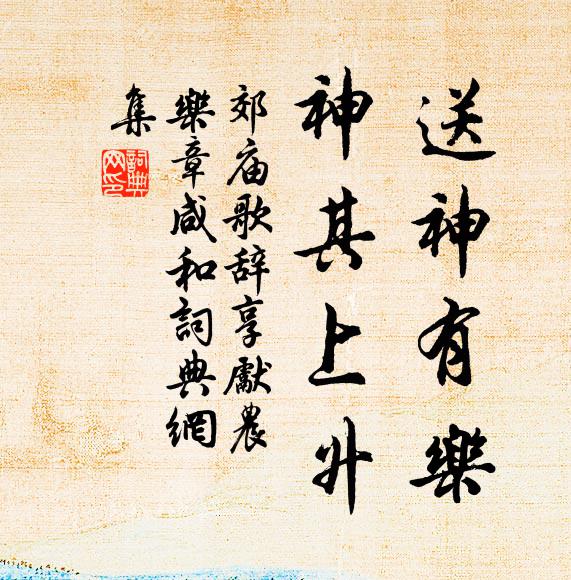 送神有樂
神其上升
郊庙歌辞享獻農
樂章咸和詞典網
集
詞典網印